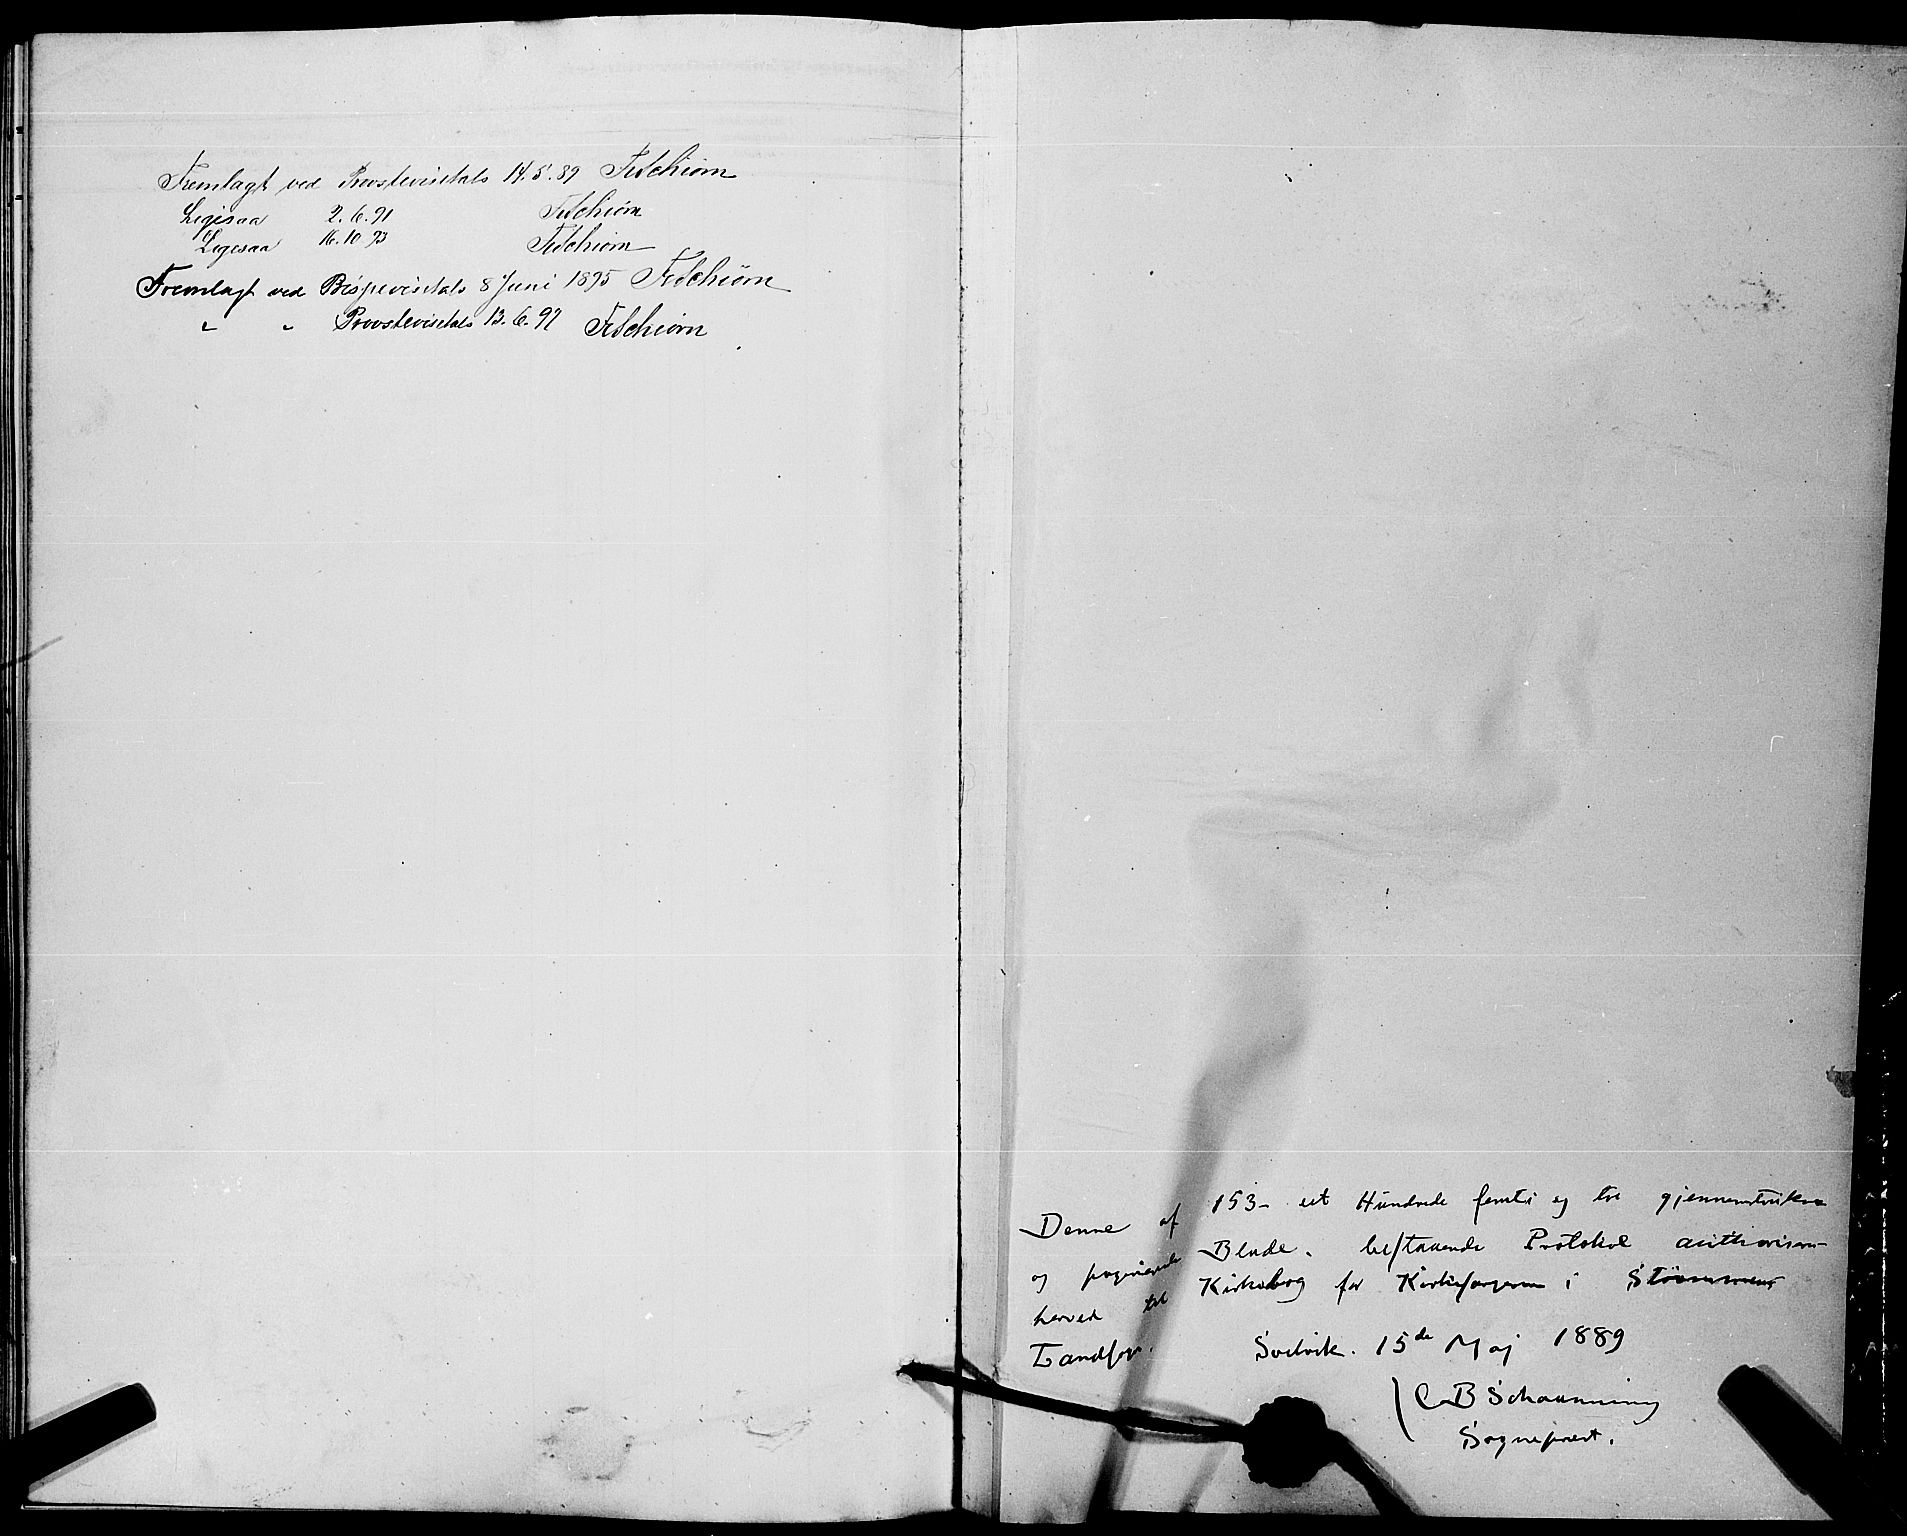 Fremlagt ved Provstevisitats 14.5.89 FrSchiørn
Ligesaa 2.6.91 FrSchiørn
Ligesaa 16.10 93 FrSchiørn
Fremlagt ved Bispevisitats 8 Juni 1895 FrSchiørn
" " Provstevisitats 13.6.97 FrSchiørn
Denne af 153 - et Hundrede femti og tre gjennemtrukne
og paginerede Blade. bestaaende Protokol authoriseres
herved til Kirkebog for Kirkesangeren i Strømmens
Landsogn.
Svelvik. 15de Maj 1889
C B Schanning
Sognepræst.